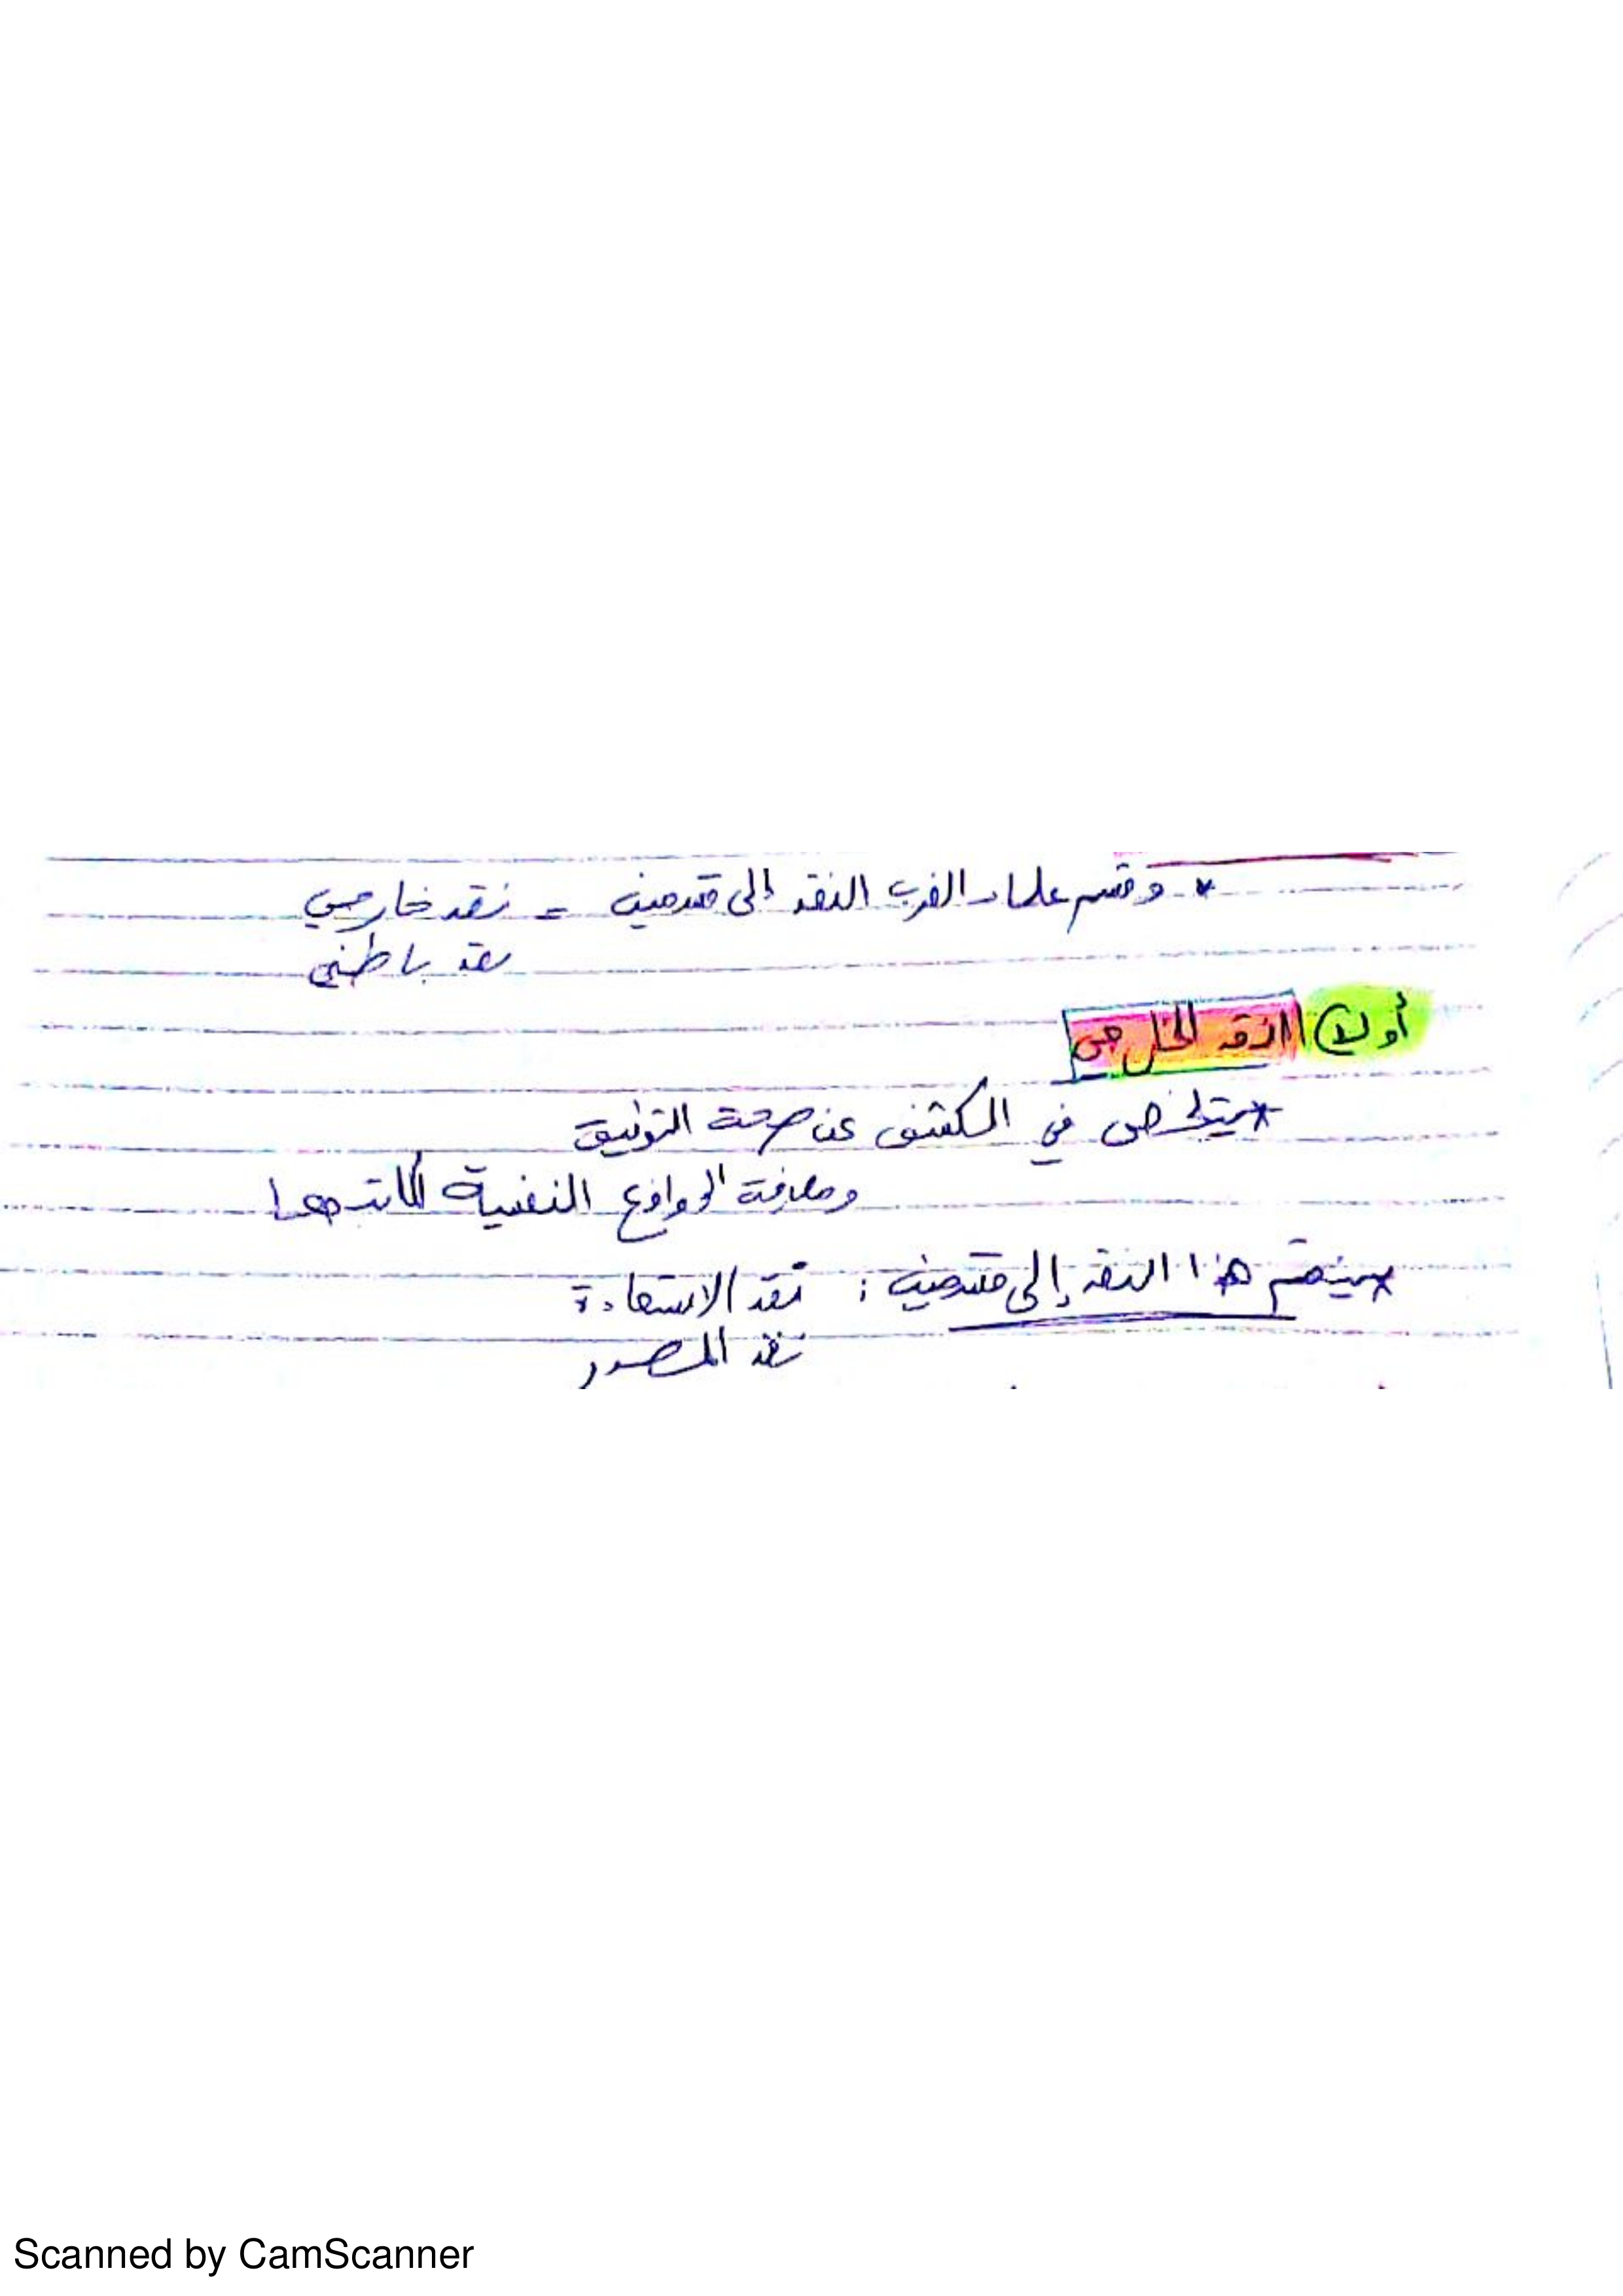 * وقسم علماء الغرب النقد إلى قسمين = نقد خارجي
نقد باطني
أولا النقد الخارجي
* يتلخص في الكشف عن صحة التوثيق
ومعرفة الدوافع النفسية لكاتبها
* ينقسم هذا النقد إلى قسمين : نقد الاستعادة
نقد المصدر
Scanned by CamScanner